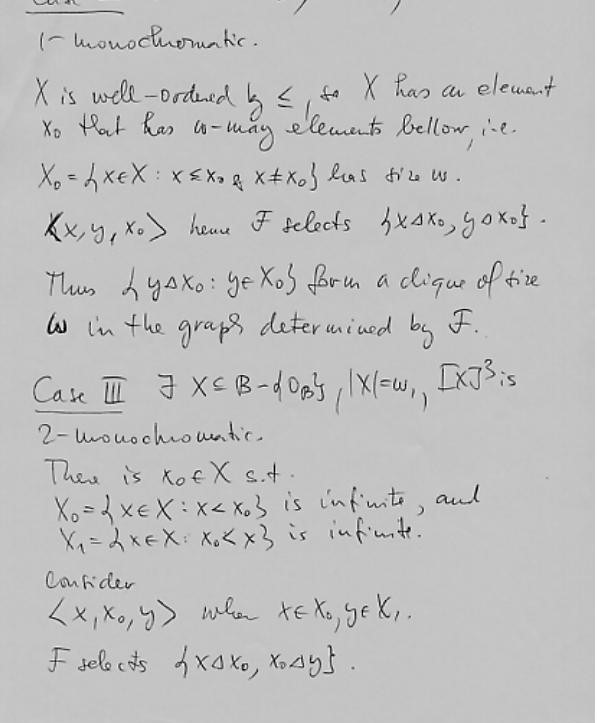 1-monochromatic.
X is well-ordered by ≤, so X has an element
x₀ that has ω-many elements bellow, i.e.
X₀ = {x∈X : x≤x₀ & x≠x₀} has size ω.
⟨x, y, x₀⟩ hence F selects {x△x₀, y△x₀}.
Thus {y△x₀ : y∈X₀} form a clique of size
ω in the graph determined by F.
Case III ∃ X⊆B-{0_B}, |X|=ω₁, [X]³ is
2-monochromatic.
There is x₀∈X s.t.
X₀={x∈X : x<x₀} is infinite, and
X₁={x∈X : x₀<x} is infinite.
Consider
⟨x, x₀, y⟩ when x∈X₀, y∈X₁.
F selects {x△x₀, x₀△y}.